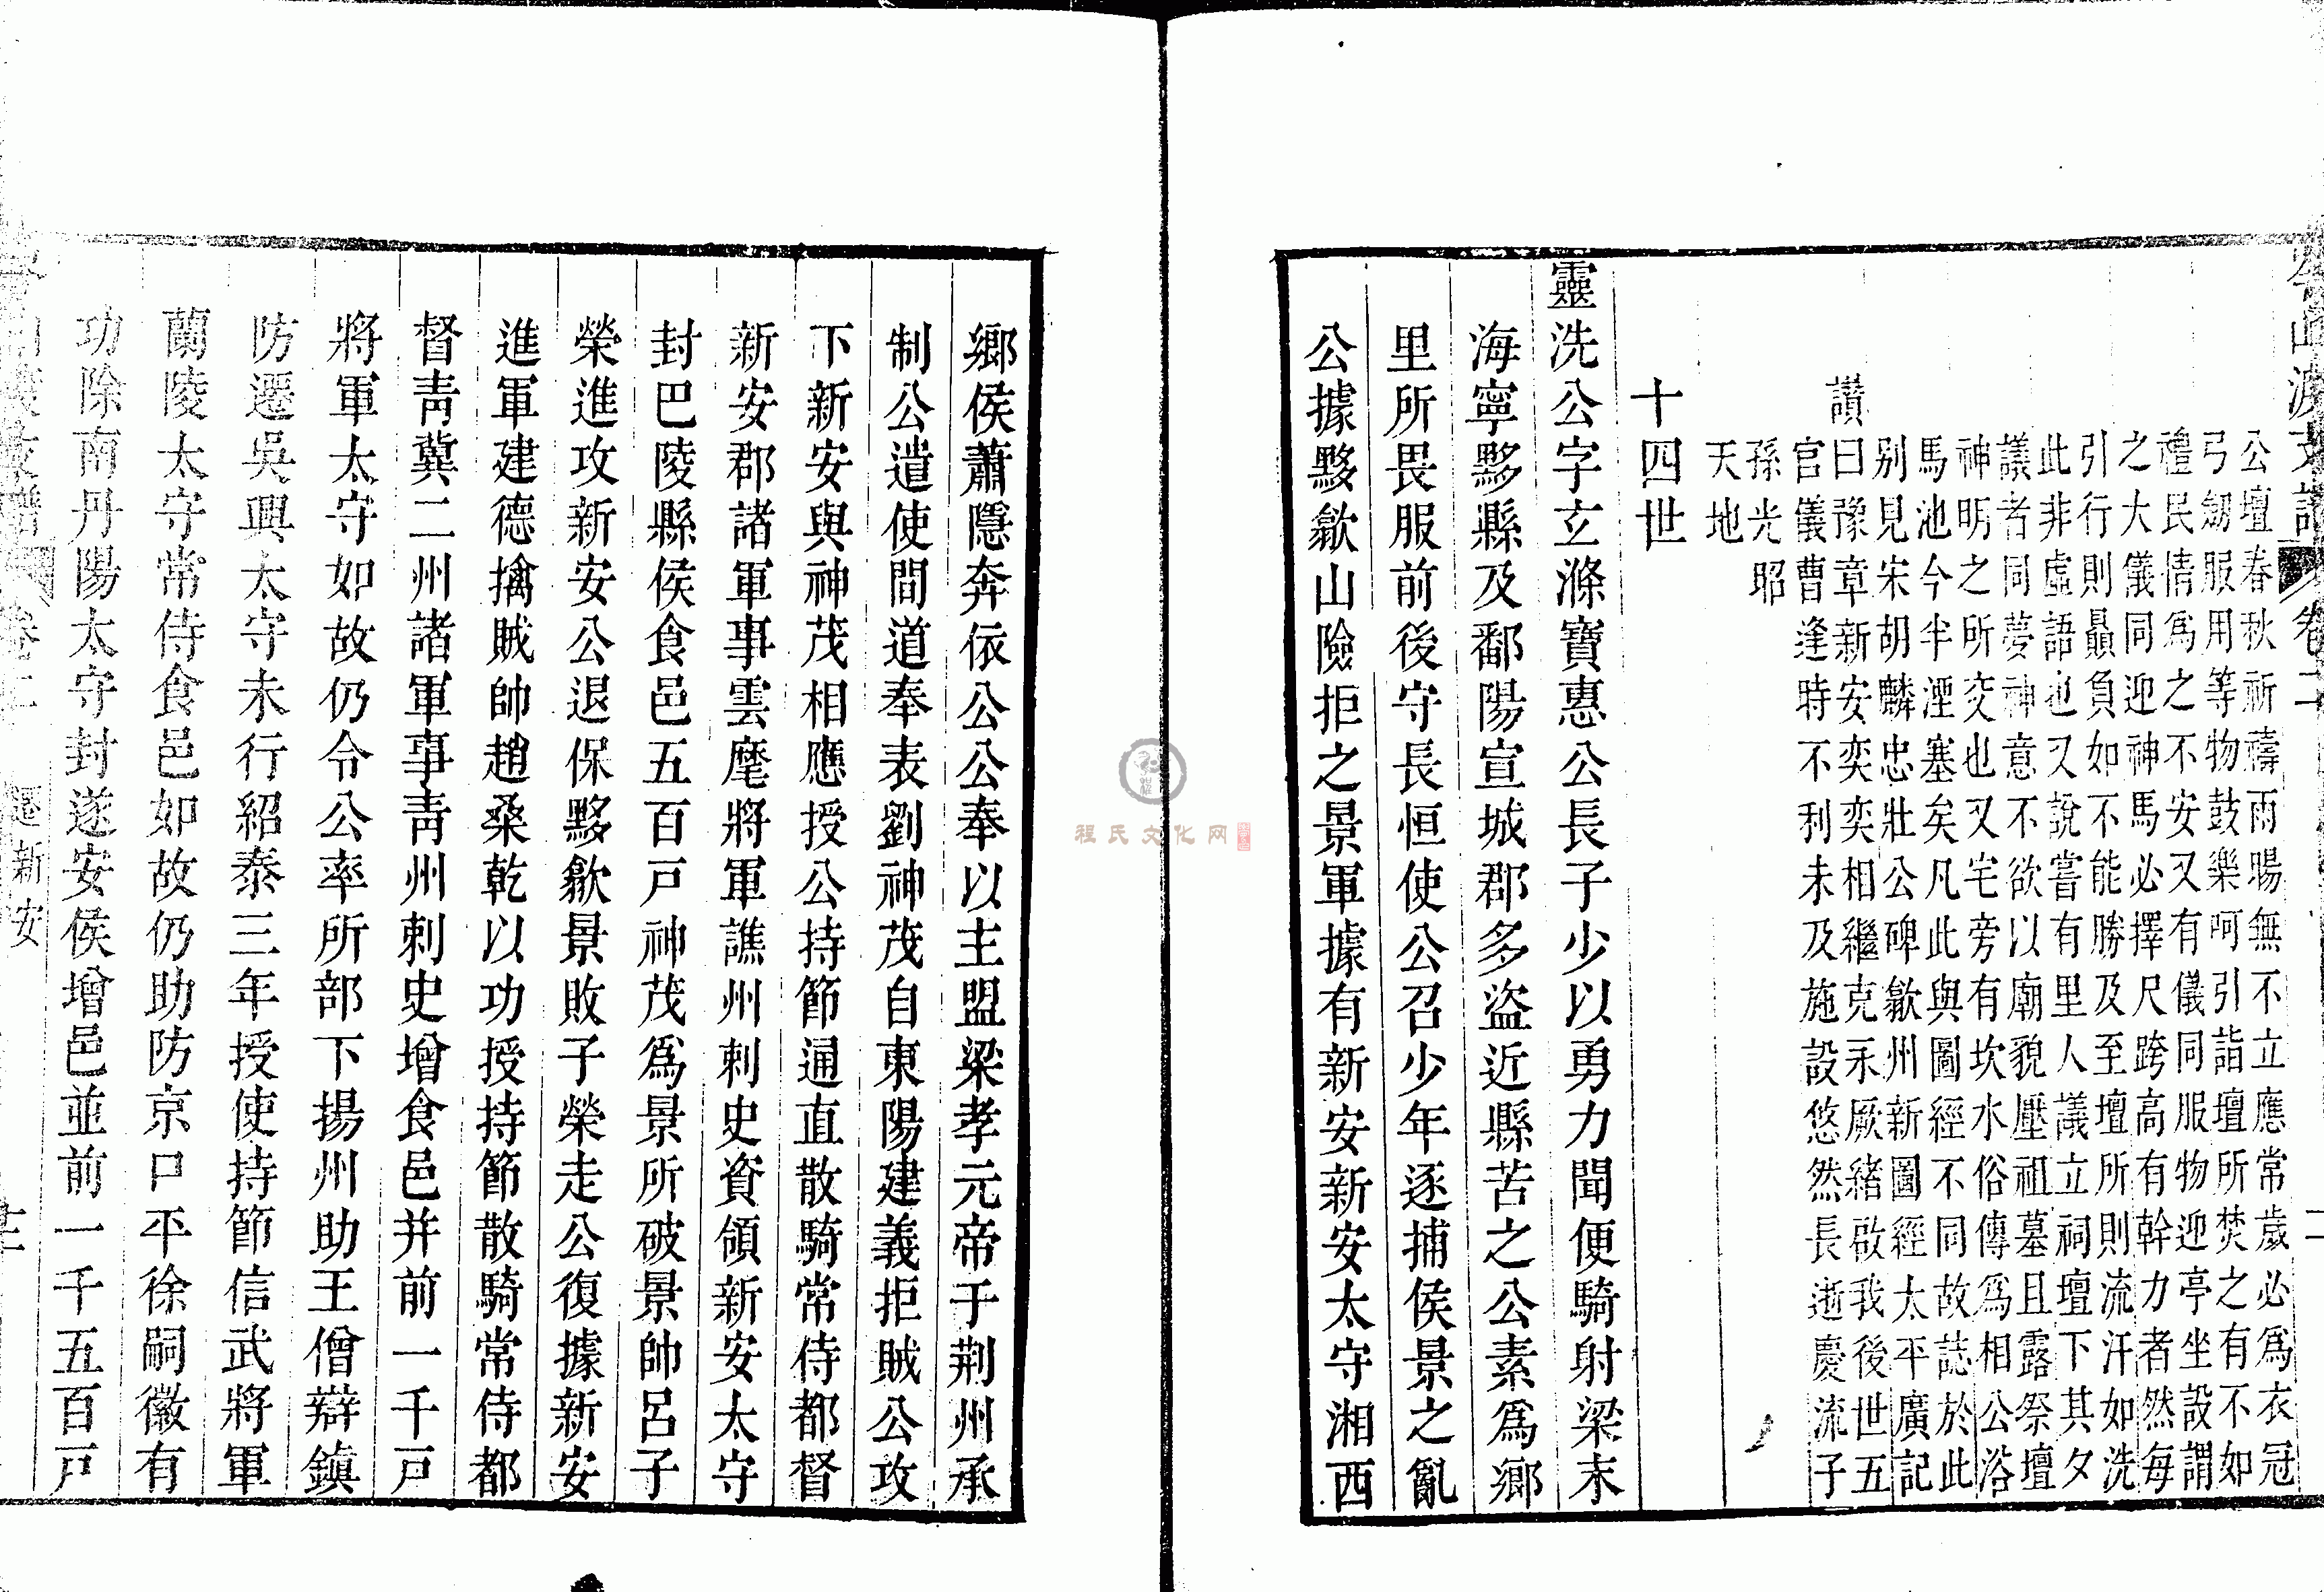 公壇春秋祈禱雨暘無不立應常歲必為衣冠
弓劒服用等物鼓樂呵引詣壇所焚之有不如
禮民情為之不安又有儀同服物迎亭坐設謂
之大儀同迎神馬必擇尺跨高有幹力者然每
引行則贔負如不能勝及至壇所則流汗如洗
此非虛語也又說嘗有里人議立祠壇下其夕
議者同夢神意不欲以廟貌壓祖墓且露祭壇
神明之所交也又宅旁有坎水俗傳為相公浴
馬池今半湮塞矣凡此與圖經不同故誌於此
别見宋胡麟忠壯公碑歙州新圖經太平廣記
讃
曰豫章新安奕奕相繼克禾厥緒啟我後世五
官儀曹逢時不利未及施設悠然長逝慶流子
孫光昭
天地
十四世
靈洗公字玄滌寶惠公長子少以勇力聞便騎射梁末
海寧黟縣及鄱陽宣城郡多盜近縣苦之公素為鄉
里所畏服前後守長恒使公召少年逐捕侯景之亂
公據黟歙山險拒之景軍據有新安新安太守湘西
鄉侯蕭隱奔依公公奉以主盟梁孝元帝于荆州承
制公遣使間道奉表劉神茂自東陽建義拒賊公攻
下新安與神茂相應授公持節通直散騎常侍都督
新安郡諸軍事雲麾將軍譙州刺史資領新安太守
封巴陵縣侯食邑五百戸神茂為景所破景帥呂子
榮進攻新安公退保黟歙景敗子榮走公復據新安
進軍建德擒賊帥趙桑乾以功授持節散騎常侍都
督靑冀二州諸軍事靑州刺史增食邑并前一千戸
將軍太守如故仍令公率所部下揚州助王僧辯鎮
防遷吳興太守未行紹泰三年授使持節信武將軍
蘭陵太守常侍食邑如故仍助防京口平徐嗣徽有
功除南丹陽太守封遂安侯增邑並前一千五百戸
遷新安
程氏文化网